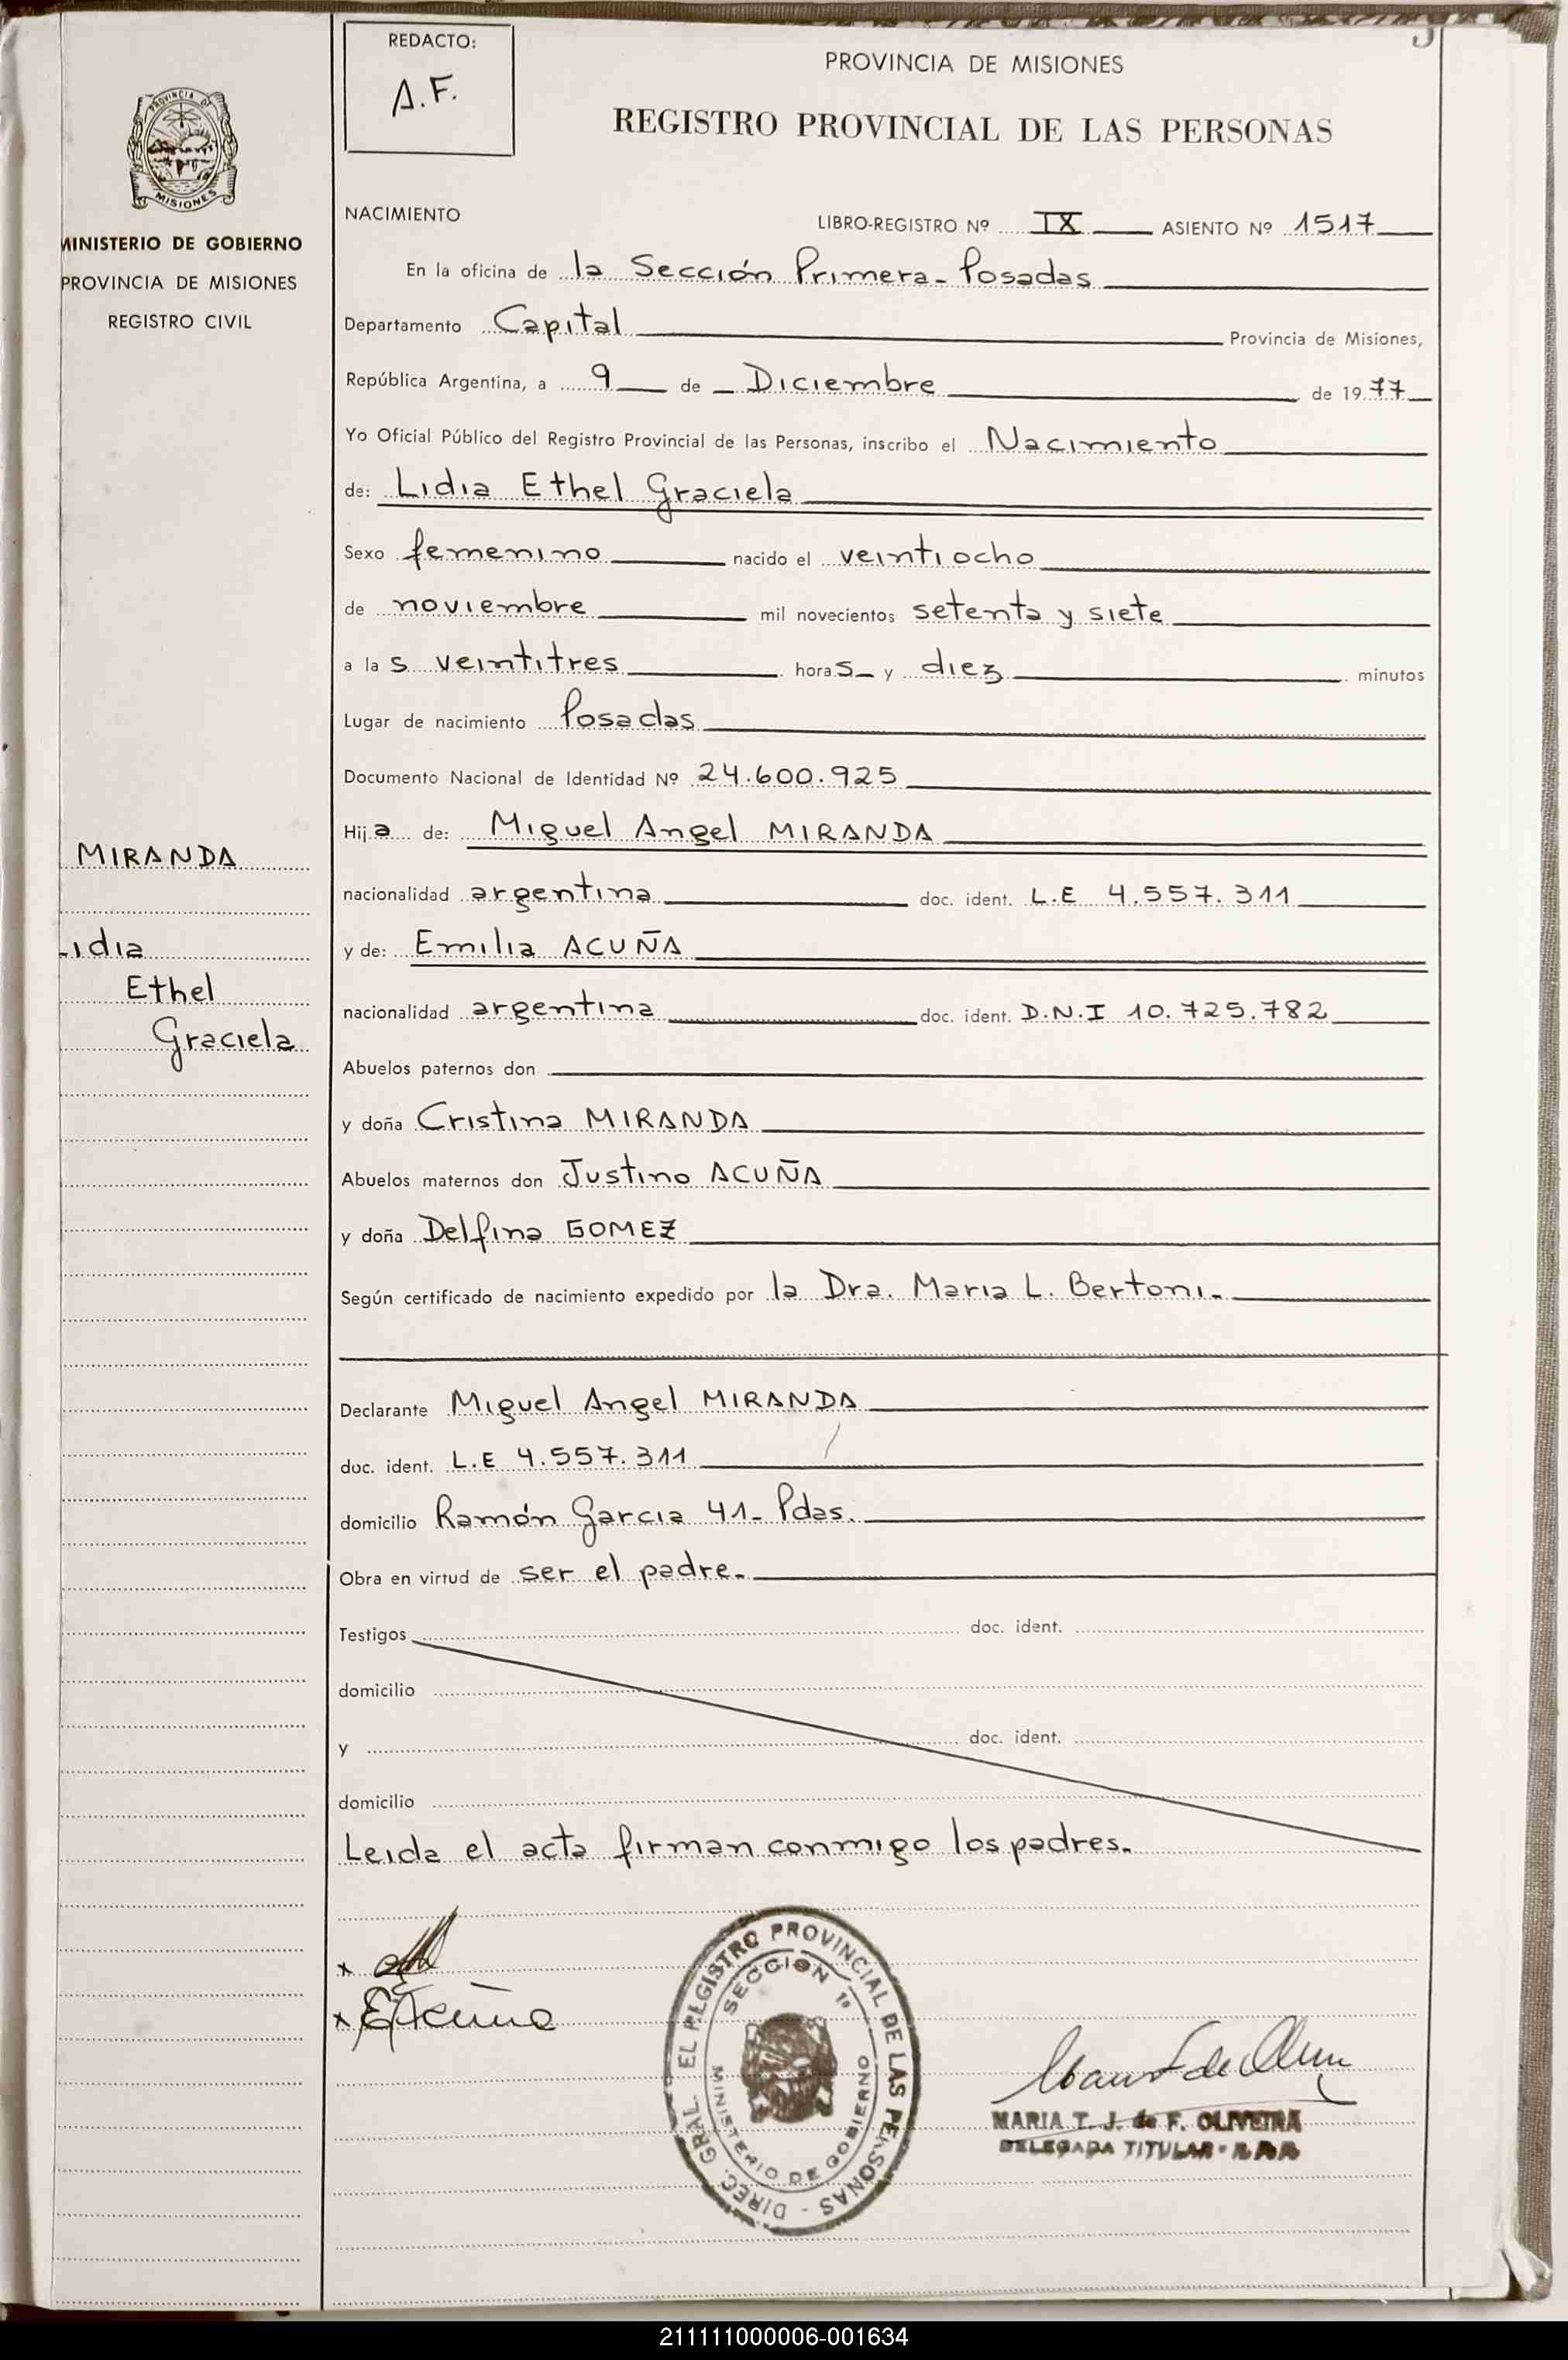 REDACTO:
A.F.
PROVINCIA DE MISIONES
REGISTRO PROVINCIAL DE LAS PERSONAS
PROVINCIA DE
MISIONES
MINISTERIO DE GOBIERNO
PROVINCIA DE MISIONES
REGISTRO CIVIL
NACIMIENTO
LIBRO-REGISTRO Nº IX ASIENTO Nº 1517
En la oficina de la Sección Primera - Posadas
Departamento Capital Provincia de Misiones,
República Argentina, a 9 de Diciembre de 1977
Yo Oficial Público del Registro Provincial de las Personas, inscribo el Nacimiento
de: Lidia Ethel Graciela
Sexo femenino nacido el veintiocho
de noviembre mil novecientos setenta y siete
a las veintitres horas y diez minutos
Lugar de nacimiento Posadas
Documento Nacional de Identidad Nº 24.600.925
Hija de: Miguel Angel MIRANDA
nacionalidad argentina doc. ident. L.E 4.557.311
y de: Emilia ACUÑA
nacionalidad argentina doc. ident. D.N.I 10.725.782
Abuelos paternos don
y doña Cristina MIRANDA
Abuelos maternos don Justino ACUÑA
y doña Delfina GOMEZ
Según certificado de nacimiento expedido por la Dra. Maria L. Bertoni.
Declarante Miguel Angel MIRANDA
doc. ident. L.E 4.557.311
domicilio Ramón Garcia 41 - Pdas.
Obra en virtud de ser el padre.
Testigos doc. ident.
domicilio
y doc. ident.
domicilio
Leida el acta firman conmigo los padres.
MIRANDA
Lidia
Ethel
Graciela
x
x EAcuña
DIREC. GRAL. EL REGISTRO PROVINCIAL DE LAS PERSONAS -
SECCION 1ª
MINISTERIO DE GOBIERNO
MARIA T. J. de F. OLIVEIRA
DELEGADA TITULAR -
211111000006-001634